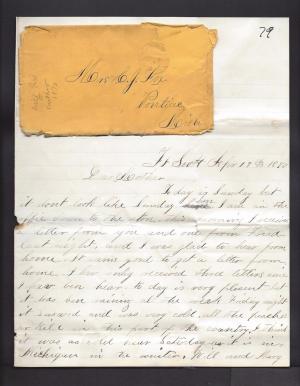 79
Mrs E J Fox
Pontiac
Mich
Ft Scott Apr 12th
Dear Mother
To day is Sunday but
it dont look like Sunday I am in the
down to the store this morning I received
a letter from you and one from Fred
last night and I was glad to hear from
home. It seems good to get a letter from
home. I have only received three letters since
I have ben hear. to day is very plesent but
it has ben raining all the week Friday night
it snowed and was very cold. all the peaches
is kild in this part of the country. I think
it was as cold hear Saturday as it is in
Michigan in the winter. Will and Mary